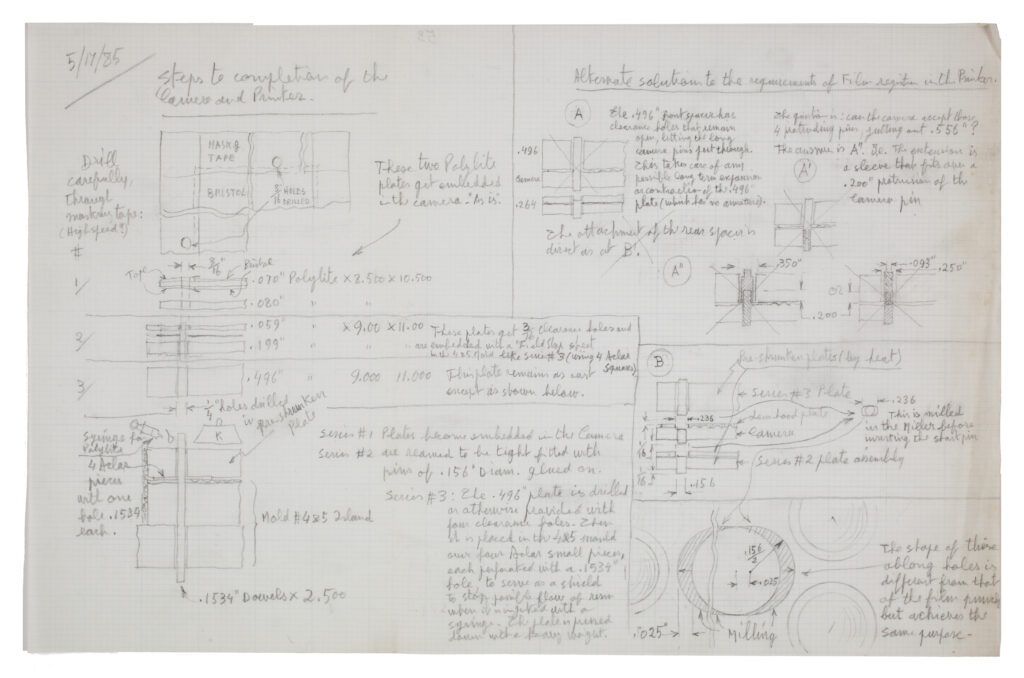 5/17/85
Steps to completion of the
Camera and Printer.
MASK'G
TAPE
BRISTOL
HOLES
DRILLED
Drill
carefully,
through
masking tape:
(High speed?)
#
These two Polylite
plates get embedded
in the camera "As is".
Tape
3/16"
Bristol
1/ .070" Polylite × 8.500 × 10.500
.080" " "
2/ .059" " × 9.00 × 11.00
.199" " " "
These plates get 3/16 clearance holes and
are embedded with a "Field Stop sheet
in the 485 Mold like Series #3 (using 4 Aclar
Squares).
3/ .496" " 9.000 11.000
This plate remains as cast
except as shown below.
1/4" holes drilled
in pre-shrunken
plate
Syringe for
Polylite
K
4 Aclar
pieces
with one
hole .1534
each.
Mold #485 Island
.1534" Dowels × 2.500
Series #1 Plates become embedded in the Camera
Series #2 are reamed to be tight fitted with
pins of .156" Diam. glued on.
Series #3: The .496" plate is drilled
or otherwise provided with
four clearance holes. Then
it is placed in the 485 mould
over four Aclar small pieces,
each perforated with a .1534"
hole, to serve as a shield
to stop possible flow of resin
when injected with a
syringe. The plate is pressed
down with a heavy weight.
Alternate solution to the requirements of Film registration in the Printer.
A
.496
Camera
.264
The .496" front spacer has
clearance holes that remain
open, letting the long
camera pins part through.
This takes care of any
possible long term expansion
or contraction of the .496"
plate (which has no armature).
The attachment of the rear spacer is
direct as at B.
The question is: can the camera accept those
4 protruding pins, jutting out .556"?
The answer is A". I.e. The protrusion is
a sleeve that fits over a
.200" protrusion of the
camera pin
A'
A"
.350"
OR
.200
.093"
.250"
B
Pre-shrunken plates (by heat)
Series #3 Plate
.236
Camera
Series #2 plate assembly
1/16
1/16
.156
.236
This is milled
in the Miller before
inserting the short pin
.156
2
.025
.025"
Milling
The shape of these
oblong holes is
different from that
of the film punch
but achieves the
same purpose -